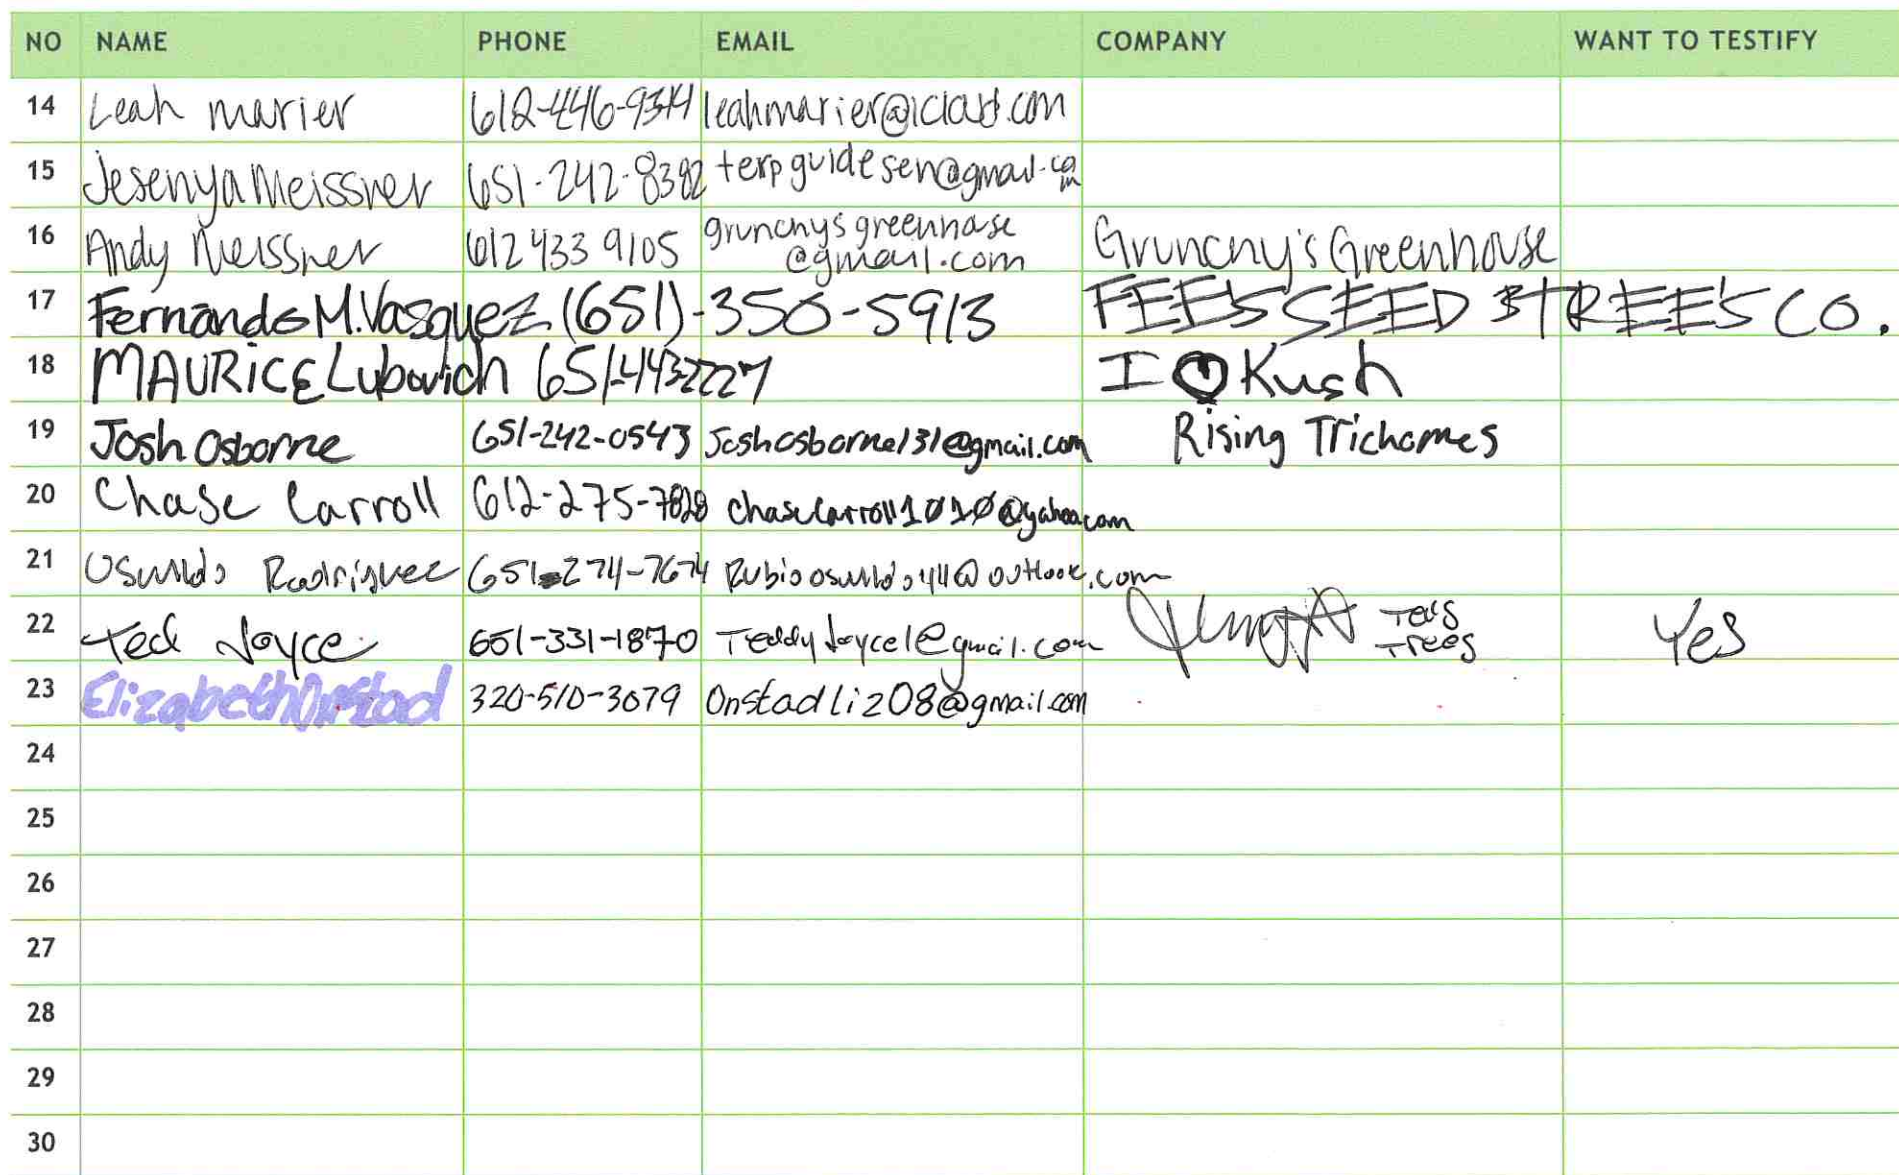 NO NAME PHONE EMAIL COMPANY WANT TO TESTIFY
14 Leah Marier leahmarier@icloud.com
15 Jesenya Meissner 651-242-8382 terpguidesen@gmail.com
16 Andy Meissner 612 433 9105 grunchysgreenhouse
@gmail.com Grunchy's Greenhouse
17 Fernando M. Vasquez (651)-350-5913 SEED & TREE'S CO.
18 MAURICE Lubovich I Kush
19 Josh Osborne 651-242-0543 Joshosborne131@gmail.com Rising Trichomes
20 Chase Carroll chasecarroll1010@yahoo.com
21 Osvaldo Rodriguez 651-274-7674
22 Ted Joyce 651-331-1870 Teddyjoyce1@gmail.com Teds
Trees Yes
23 Elizabeth Onstad 320-510-3079 Onstadliz08@gmail.com
24
25
26
27
28
29
30